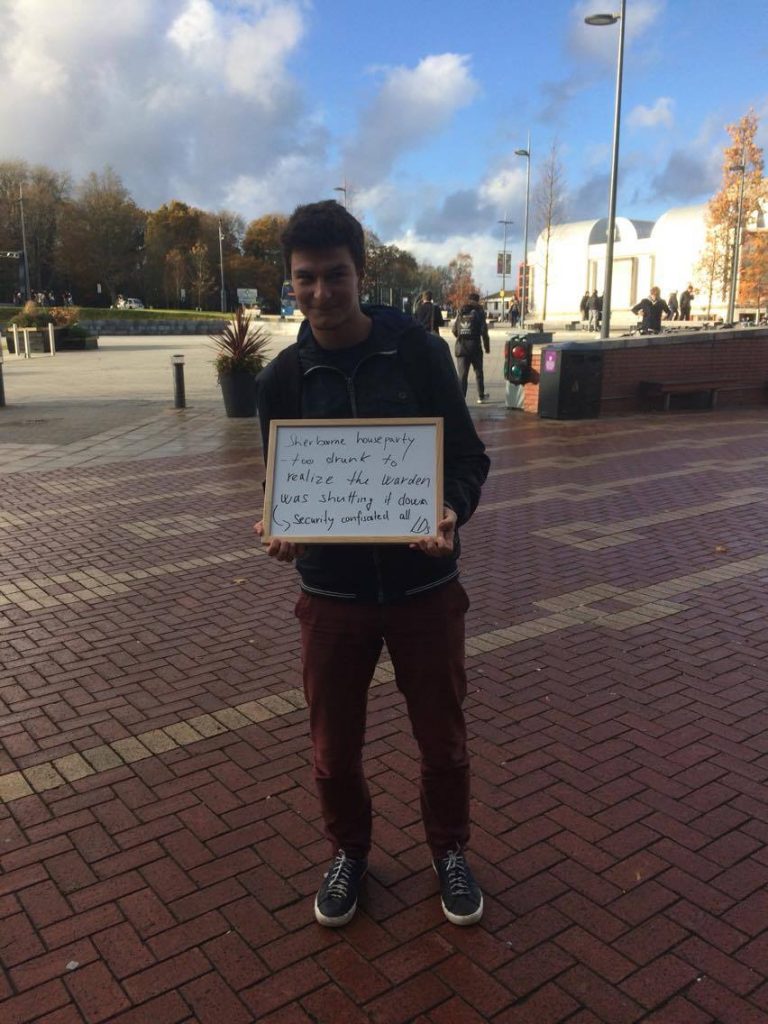 Sherborne houseparty
- too drunk to
realize the warden
was shutting it down
↳ Security confiscated all LDs